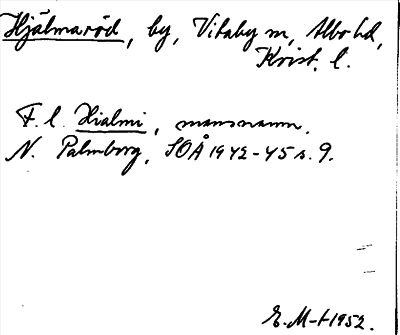 Hjälmaröd, by, Vitaby sn, Albo hd,
Krist. l.
F. l. Hialmi, mansnamn.
N. Palmborg, SOÅ 1942-45 s. 9.
E. M-t 1952.